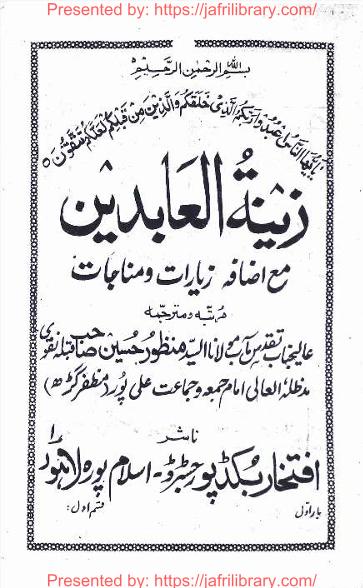 Presented by: https://jafrilibrary.com/
بسم اللہ الرحمٰن الرحیم
یٰایھا الناس اعبدوا ربکم الذی خلقکم والذین من قبلکم لعلکم تتقون
زینۃُ العَابدین
مع اضافہ زیارات و مناجات
مرتبہ و مترجمہ
عالیجناب تقدس مآب مولانا السید منظور حسین صاحب قبلہ نقوی
مدظلہٗ العالی امام جمعہ و جماعت علی پور (مظفر گڑھ)
ناشر
افتخار بکڈپو رجسٹرڈ - اسلام پورہ لاہور
بار اول
قسم اول:
Presented by: https://jafrilibrary.com/